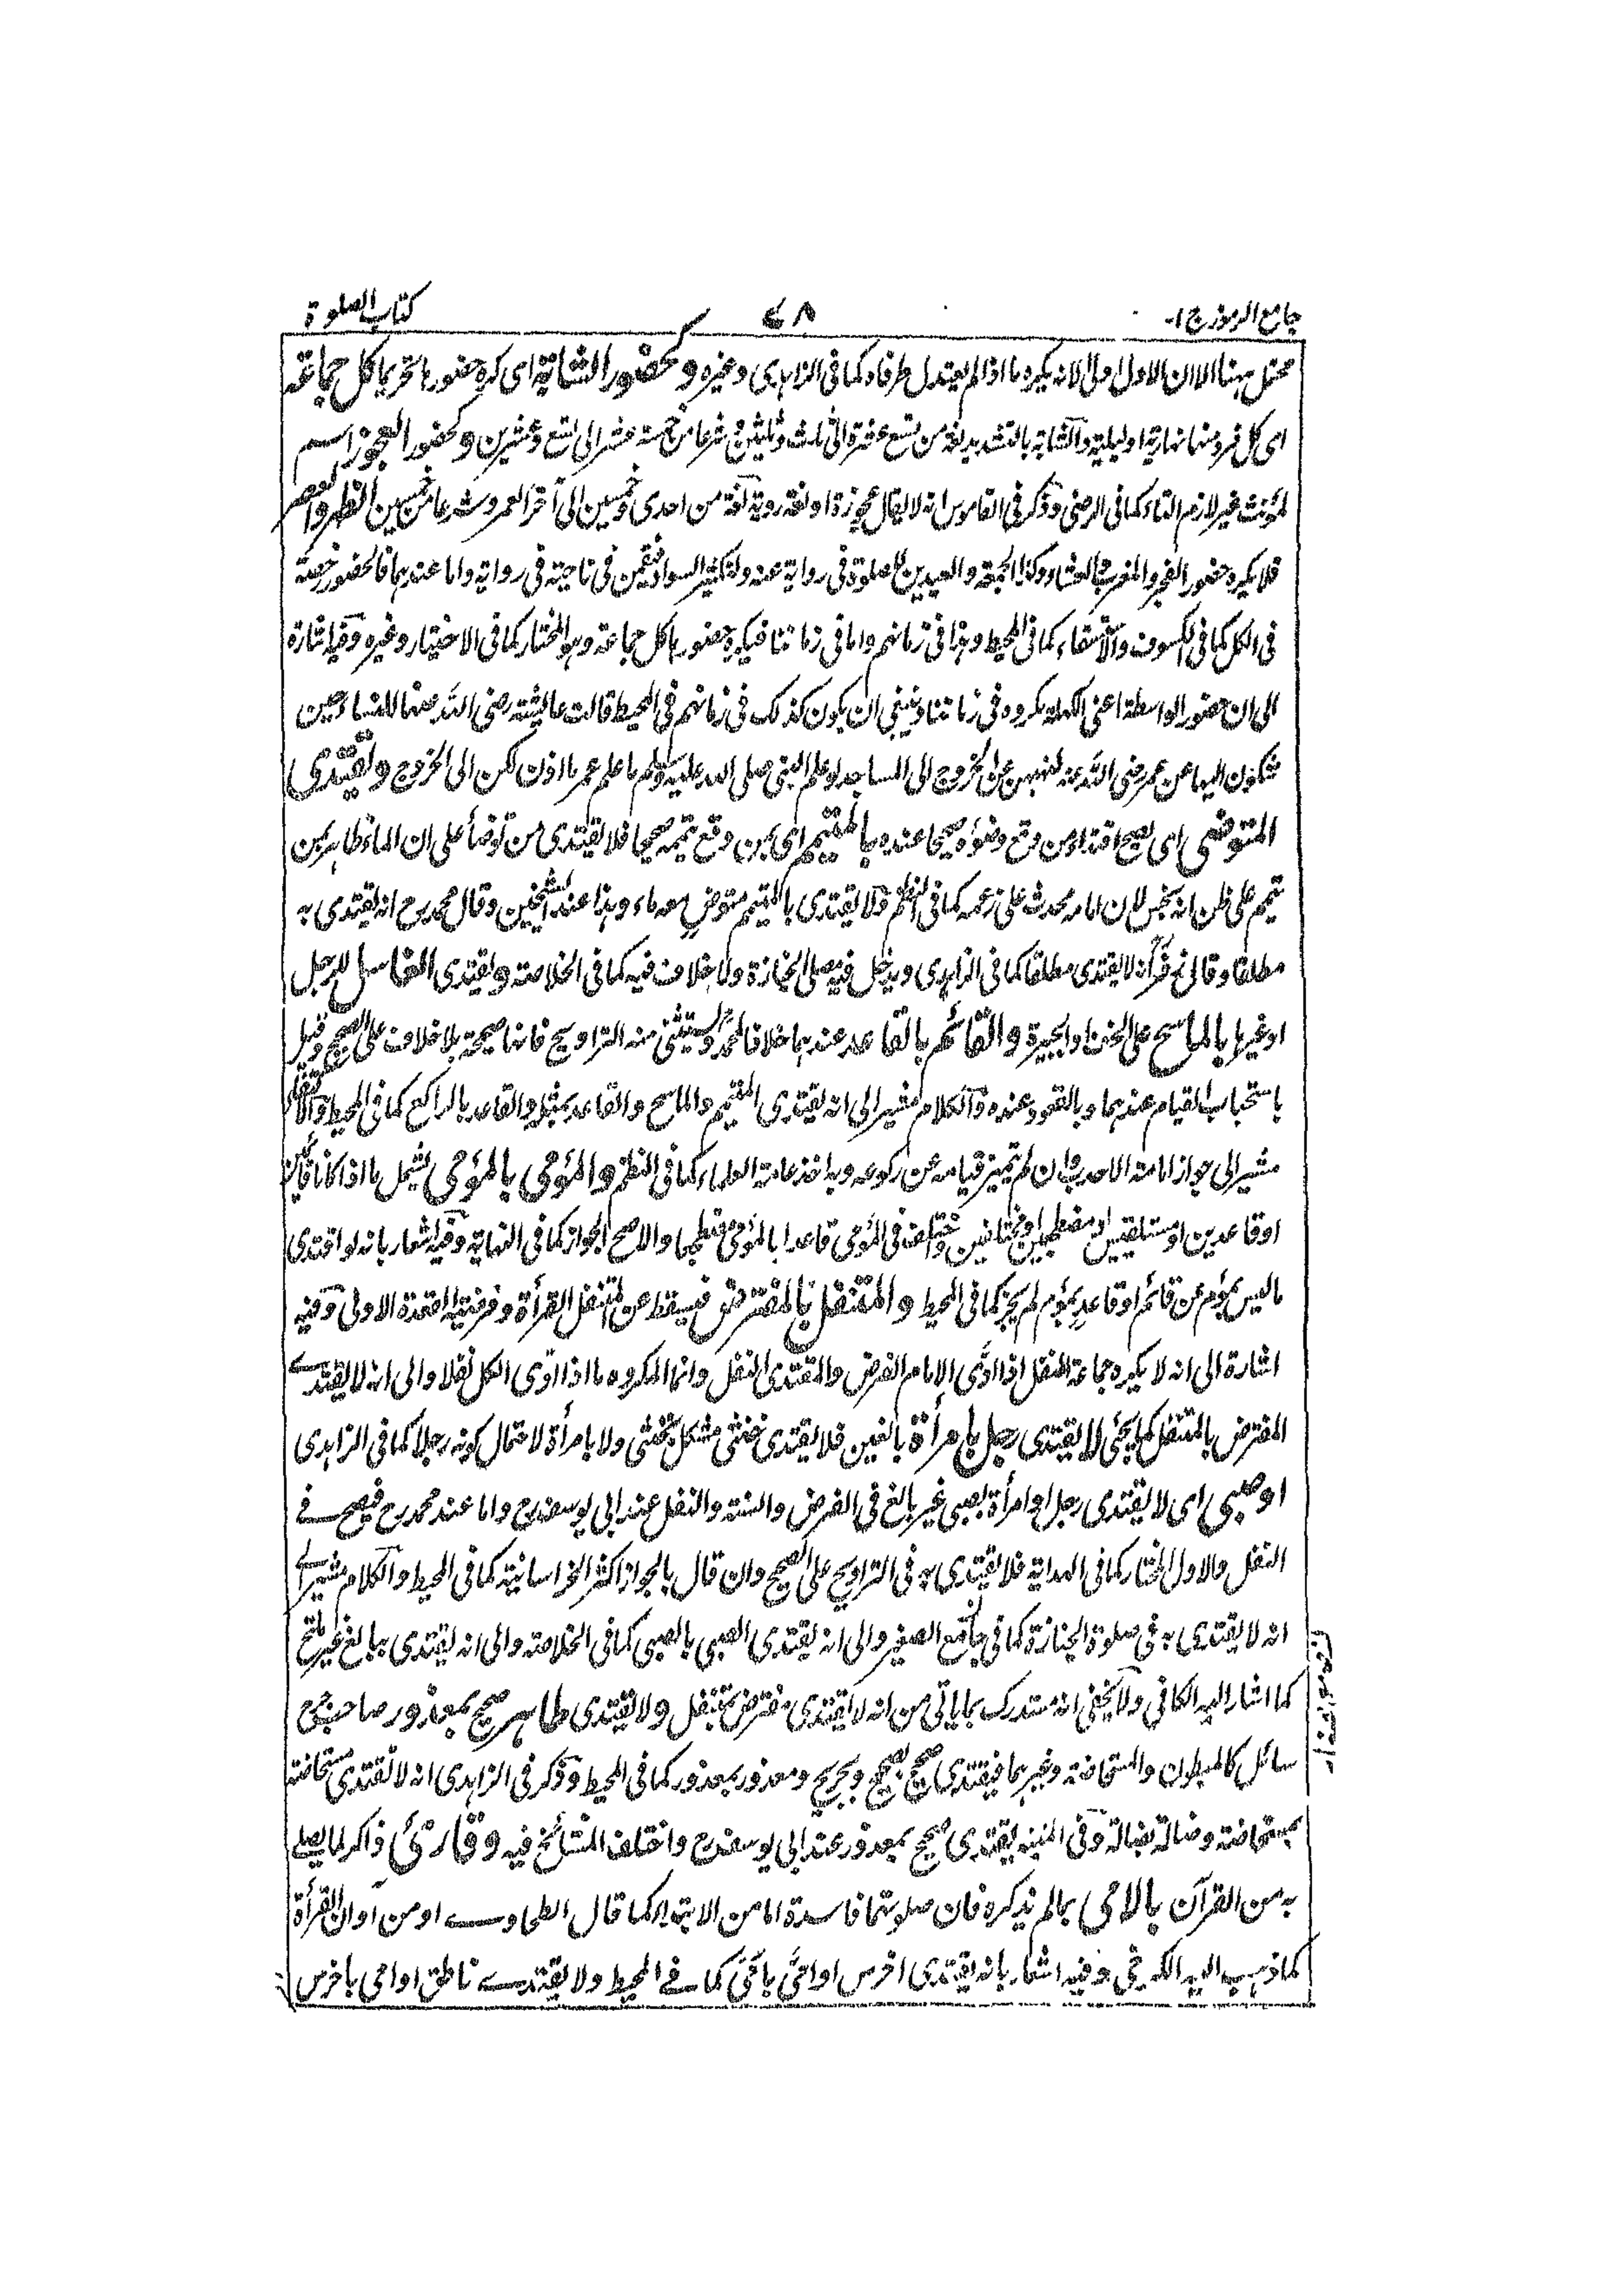 جامع الرموز ج ١-
٧٨
كتاب الصلوة
محتمل ههنا الا ان الاول اولى لانه يكره ما اذا لم يعتدل طرفاه كما فى الزاهدى وغيره و كحضور الشابة اى كره حضورها تحريما كل جماعة
اى كل فرد منها نهارية او ليلية والشابة بالتشديد لغة من تسع عشرة الى ثلث وثلثين و شرعا من خمسة عشر الى تسع وعشرين و كحضور العجوز اسم
لمؤنث غير لازم التاء كما فى الرضى وذكر فى القاموس انه لا يقال عجوزة او لغة روية لغة من احدى وخمسين الى آخر العمر وشرعا من خمسين الظهر والعصر
فلا يكره حضور الفجر والمغرب والعشاء وكذا الجمعة والعيدين للصلوة فى رواية عنه ولتكثير السواد فيقمن فى ناحيته فى رواية واما عندهما فالحضور رخصة
فى الكل كما فى الكسوف والاستسقاء كما فى المحيط وهذا فى زمانهم واما فى زماننا فيكره حضورها كل جماعة وهو المختار كما فى الاختيار وغيره وفيه اشارة
الى ان حضور الواسطة اعنى الكهلة يكره فى زماننا وينبغى ان يكون كذلك فى زمانهم فى المحيط قالت عائشة رضى الله عنها للنساء حين
شكون اليها عن عمر رضى الله عنه لنهيهن عن الخروج الى المساجد لو علم النبى صلى الله عليه وسلم ما علم عمر ما اذن لكن الى الخروج و يقتدى
المتوضى اى يصح اقتداء من وقع وضوءه صحيحا عنده بالمتيمم اى بمن وقع تيممه صحيحا فلا يقتدى من توضأ على ان الماء طاهر بمن
تيمم على ظن انه نجس لان امامه محدث على زعمه كما فى النظم ولا يقتدى بالمتيمم متوض معه ماء وهذا عند الشيخين وقال محمد رح انه يقتدى به
مطلقا وقال زفر انه لا يقتدى مطلقا كما فى الزاهدى ويدخل فيه مصلى الجنازة ولا خلاف فيه كما فى الخلاصة و يقتدى الغاسل للرجل
او غيرها بالماسح على الخف او الجبيرة و القائم بالقاعد عندهما خلافا لمحمد ويستثنى منه التراويح فانها صحيحة بلا خلاف على الصحيح وقيل
باستحباب القيام عندهما وبالقعود عنده والكلام مشير الى انه يقتدى المتيمم والماسح والقاعد بمثله والقاعد بالراكع كما فى المحيط
مشير الى جواز امامة الاحدب وان لم تميز قيامه عن ركوعه وبه اخذ عامة العلماء كما فى النظم و المؤمى بالمؤمى يشمل ما اذا كانا قائمين
او قاعدين او مستلقيين او مضطجعين او مختلفين واختلف فى المؤمى قاعدا بالمؤمى مضطجعا والاصح الجواز كما فى النهاية وفيه اشعار بانه لو اقتدى
ما ليس بمؤم من قائم او قاعد بمؤم لم يجز كما فى المحيط و المتنفل بالمفترض فيسقط عن المتنفل القرأة وفرضية القعدة الاولى وفيه
اشارة الى انه لا يكره جماعة المتنفل اذا ادى الامام الفرض والمقتدى النفل وانما المكروه ما اذا ادى الكل نفلا والى انه لا يقتدى
المفترض بالمتنفل كما يجئى لا يقتدى رجل بامرأة بالغين فلا يقتدى خنثى مشكل بخنثى ولا بامرأة لاحتمال كونه رجلا كما فى الزاهدى
او صبى اى لا يقتدى رجل او امرأة بصبى غير بالغ فى الفرض والسنة والنفل عند ابى يوسف رح واما عند محمد رح فيصح فى
النفل والاول المختار كما فى الهداية فلا يقتدى به فى التراويح على الصحيح وان قال بالجواز اكثر الخراسانية كما فى المحيط والكلام مشير الى
انه لا يقتدى به فى صلوة الجنازة كما فى جامع الصغير والى انه يقتدى الصبى بالصبى كما فى الخلاصة والى انه يقتدى ببالغ غير ملتح
كما اشار اليه الكافى ولا يخفى انه مستدرك بما ياتى من انه لا يقتدى مفترض بمتنفل و لا يقتدى طاهر صحيح بمعذور صاحب جرح
سائل كالمبطون والمستحاضة وغيرهما فيقتدى صحيح بصحيح وبجريح ومعذور بمعذور كما فى المحيط وذكر فى الزاهدى انه لا تقتدى مستحاضة
بمستحاضة وضالة بضالة وفى المنية يقتدى صحيح بمعذور عند ابى يوسف رح واختلف المشائخ فيه و قارئ ذاكر لما يصلى
به من القرآن بالامى بما لم يذكره فان صلوتهما فاسدة اما من الابتداء كما قال الطحاوى او من اوان القرأة
كما ذهب اليه الكرخى وفيه اشعار بانه يقتدى اخرس او امى بامى كما فى المحيط ولا يقتدى ناطق او امى باخرس